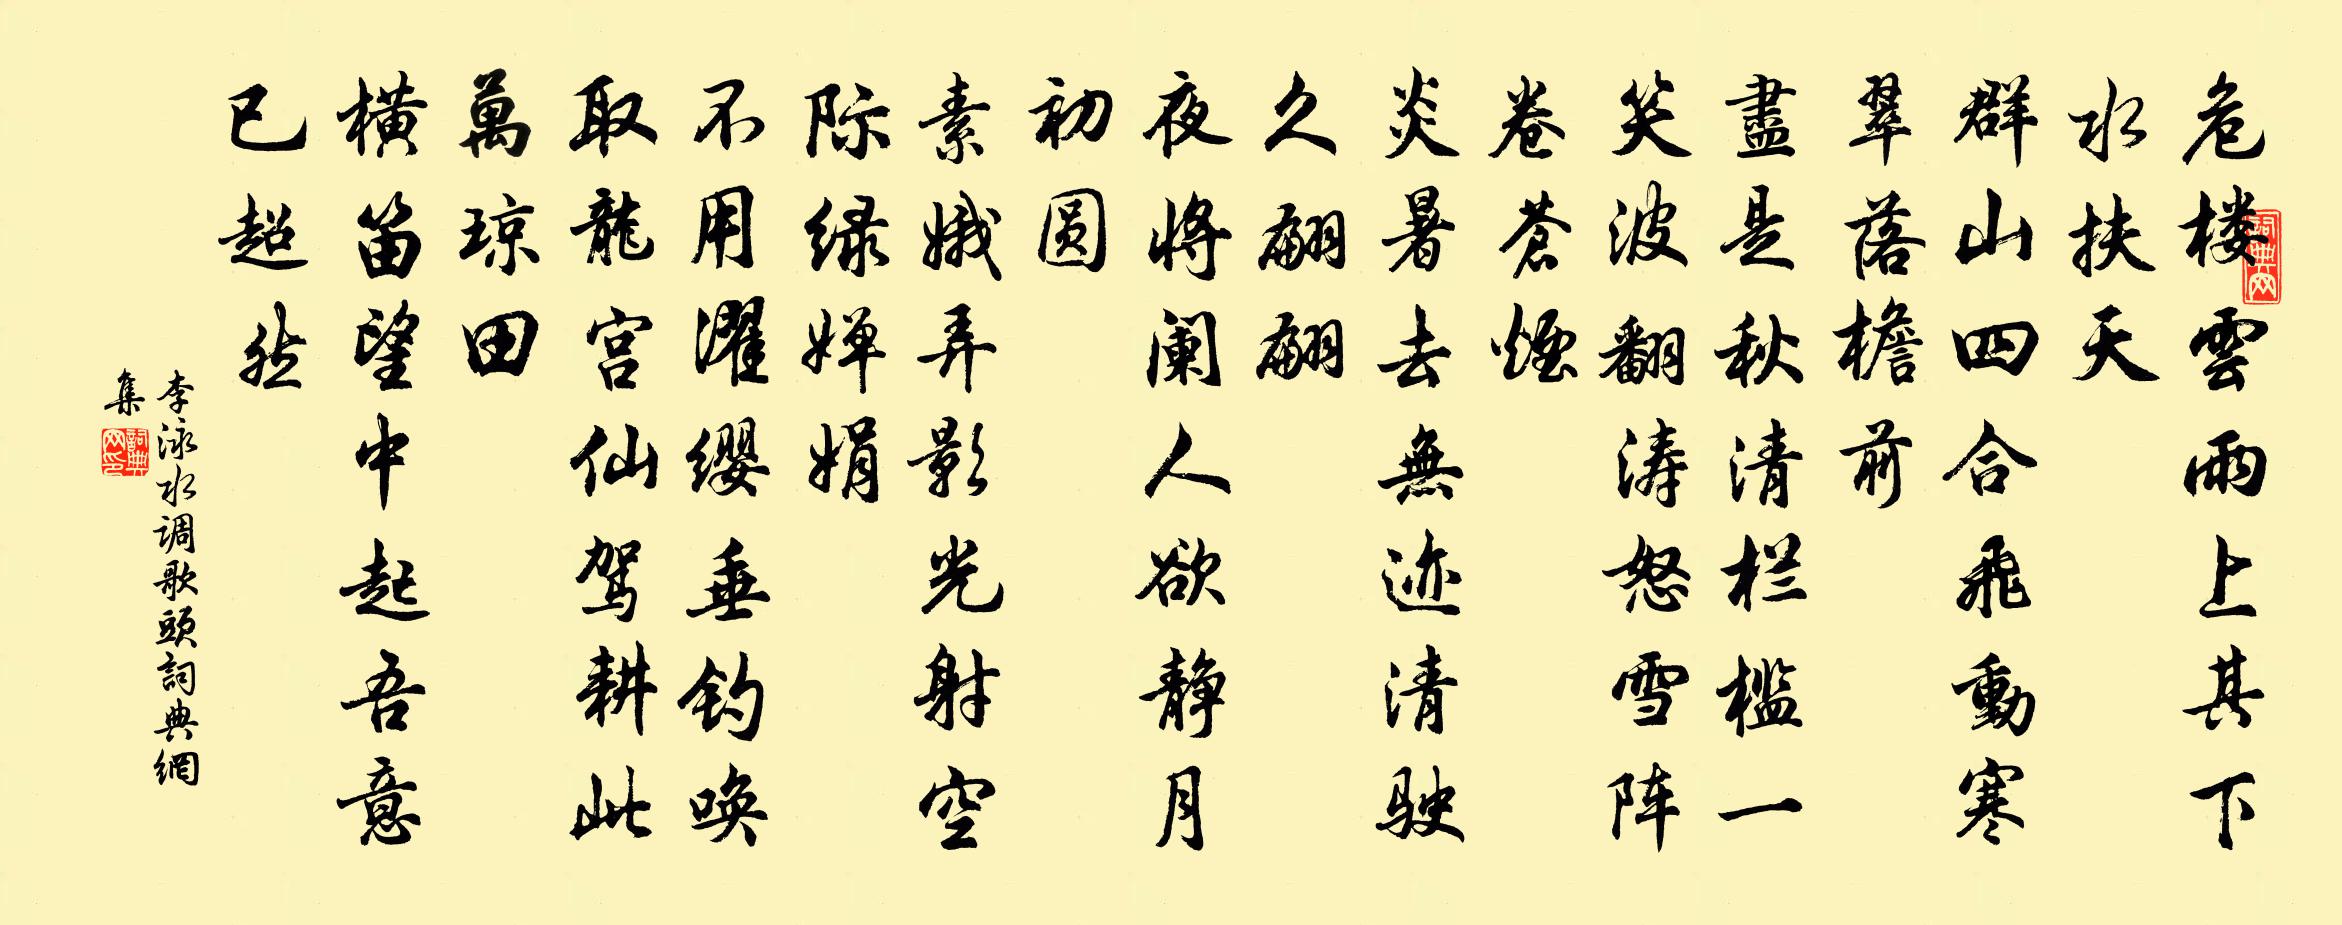 危楼雲雨上其下
水扶天
群山四合飛動寒
翠落檐前
盡是秋清栏槛一
笑波翻涛怒雪阵
卷蒼煙
炎暑去無迹清駛
久翩翩
夜将阑人欲静月
初圆
素娥弄影光射空
际绿婵娟
不用濯缨垂钓唤
取龍宫仙驾耕此
萬琼田
横笛望中起吾意
已超然
李泳水调歌頭詞典網
集
詞典网
詞典网印